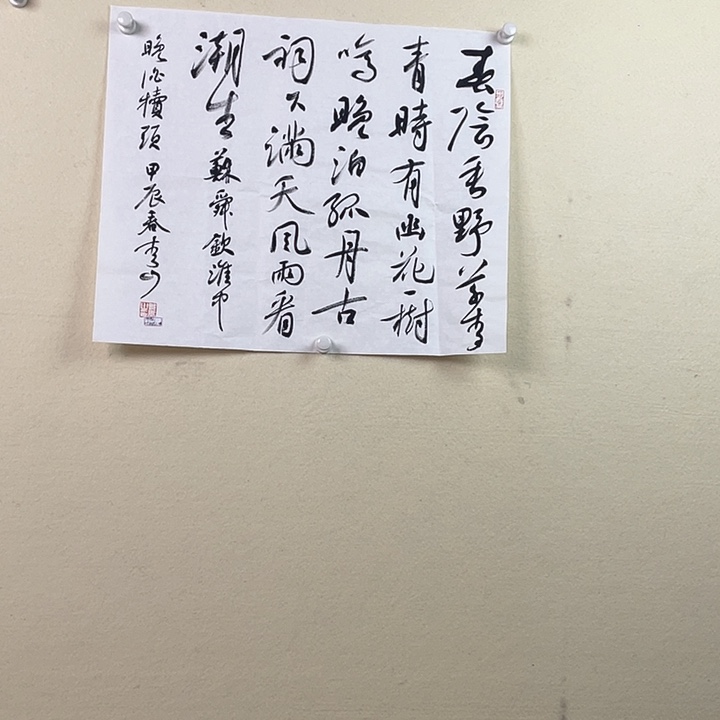 春陰垂野草青
青時有幽花一樹
鳴晚泊孤舟古
祠下滿天風雨看
潮生 蘇舜欽淮中
晚泊犢頭 甲辰春